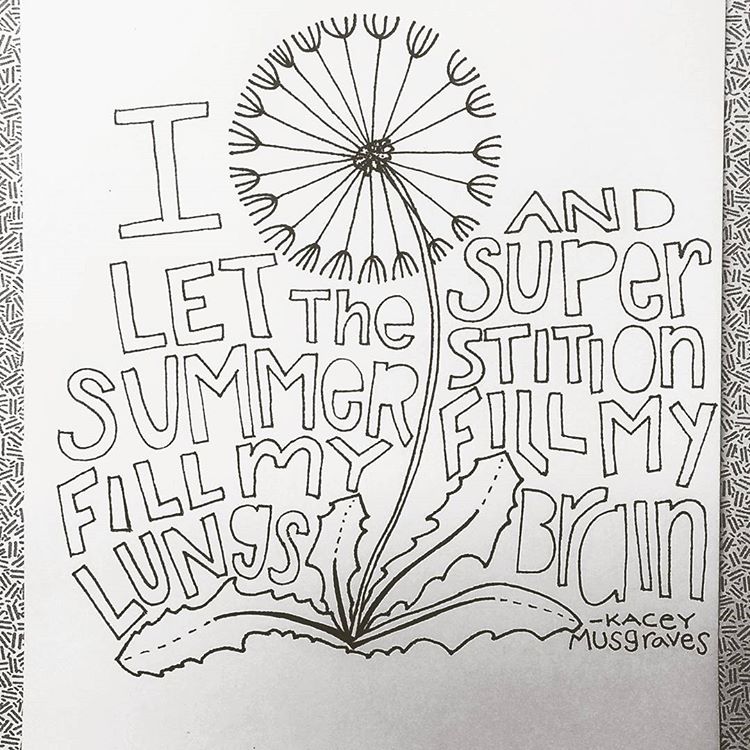 I
LET THe
SUMMeR
FILL mY
LUNgS
AND
SUPer
STITIOn
FILL MY
Brain
-KACEY
MUSgRAVeS